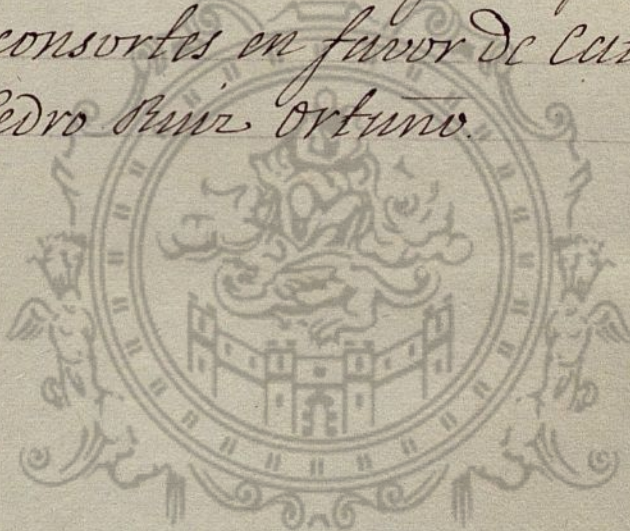 consortes en favor de
Pedro Ruiz Ortuño.